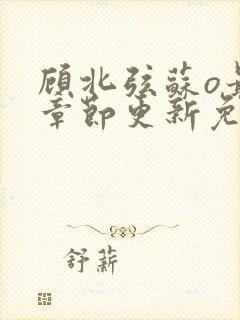 顾北弦蘇o
章節更新免
舒薪